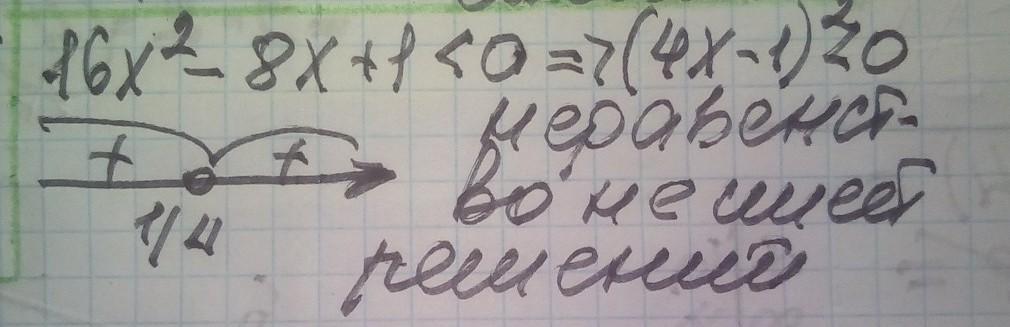 16x² - 8x + 1 < 0 => (4x - 1)² < 0
+ + неравенст-
во не имеет
1/4
решений